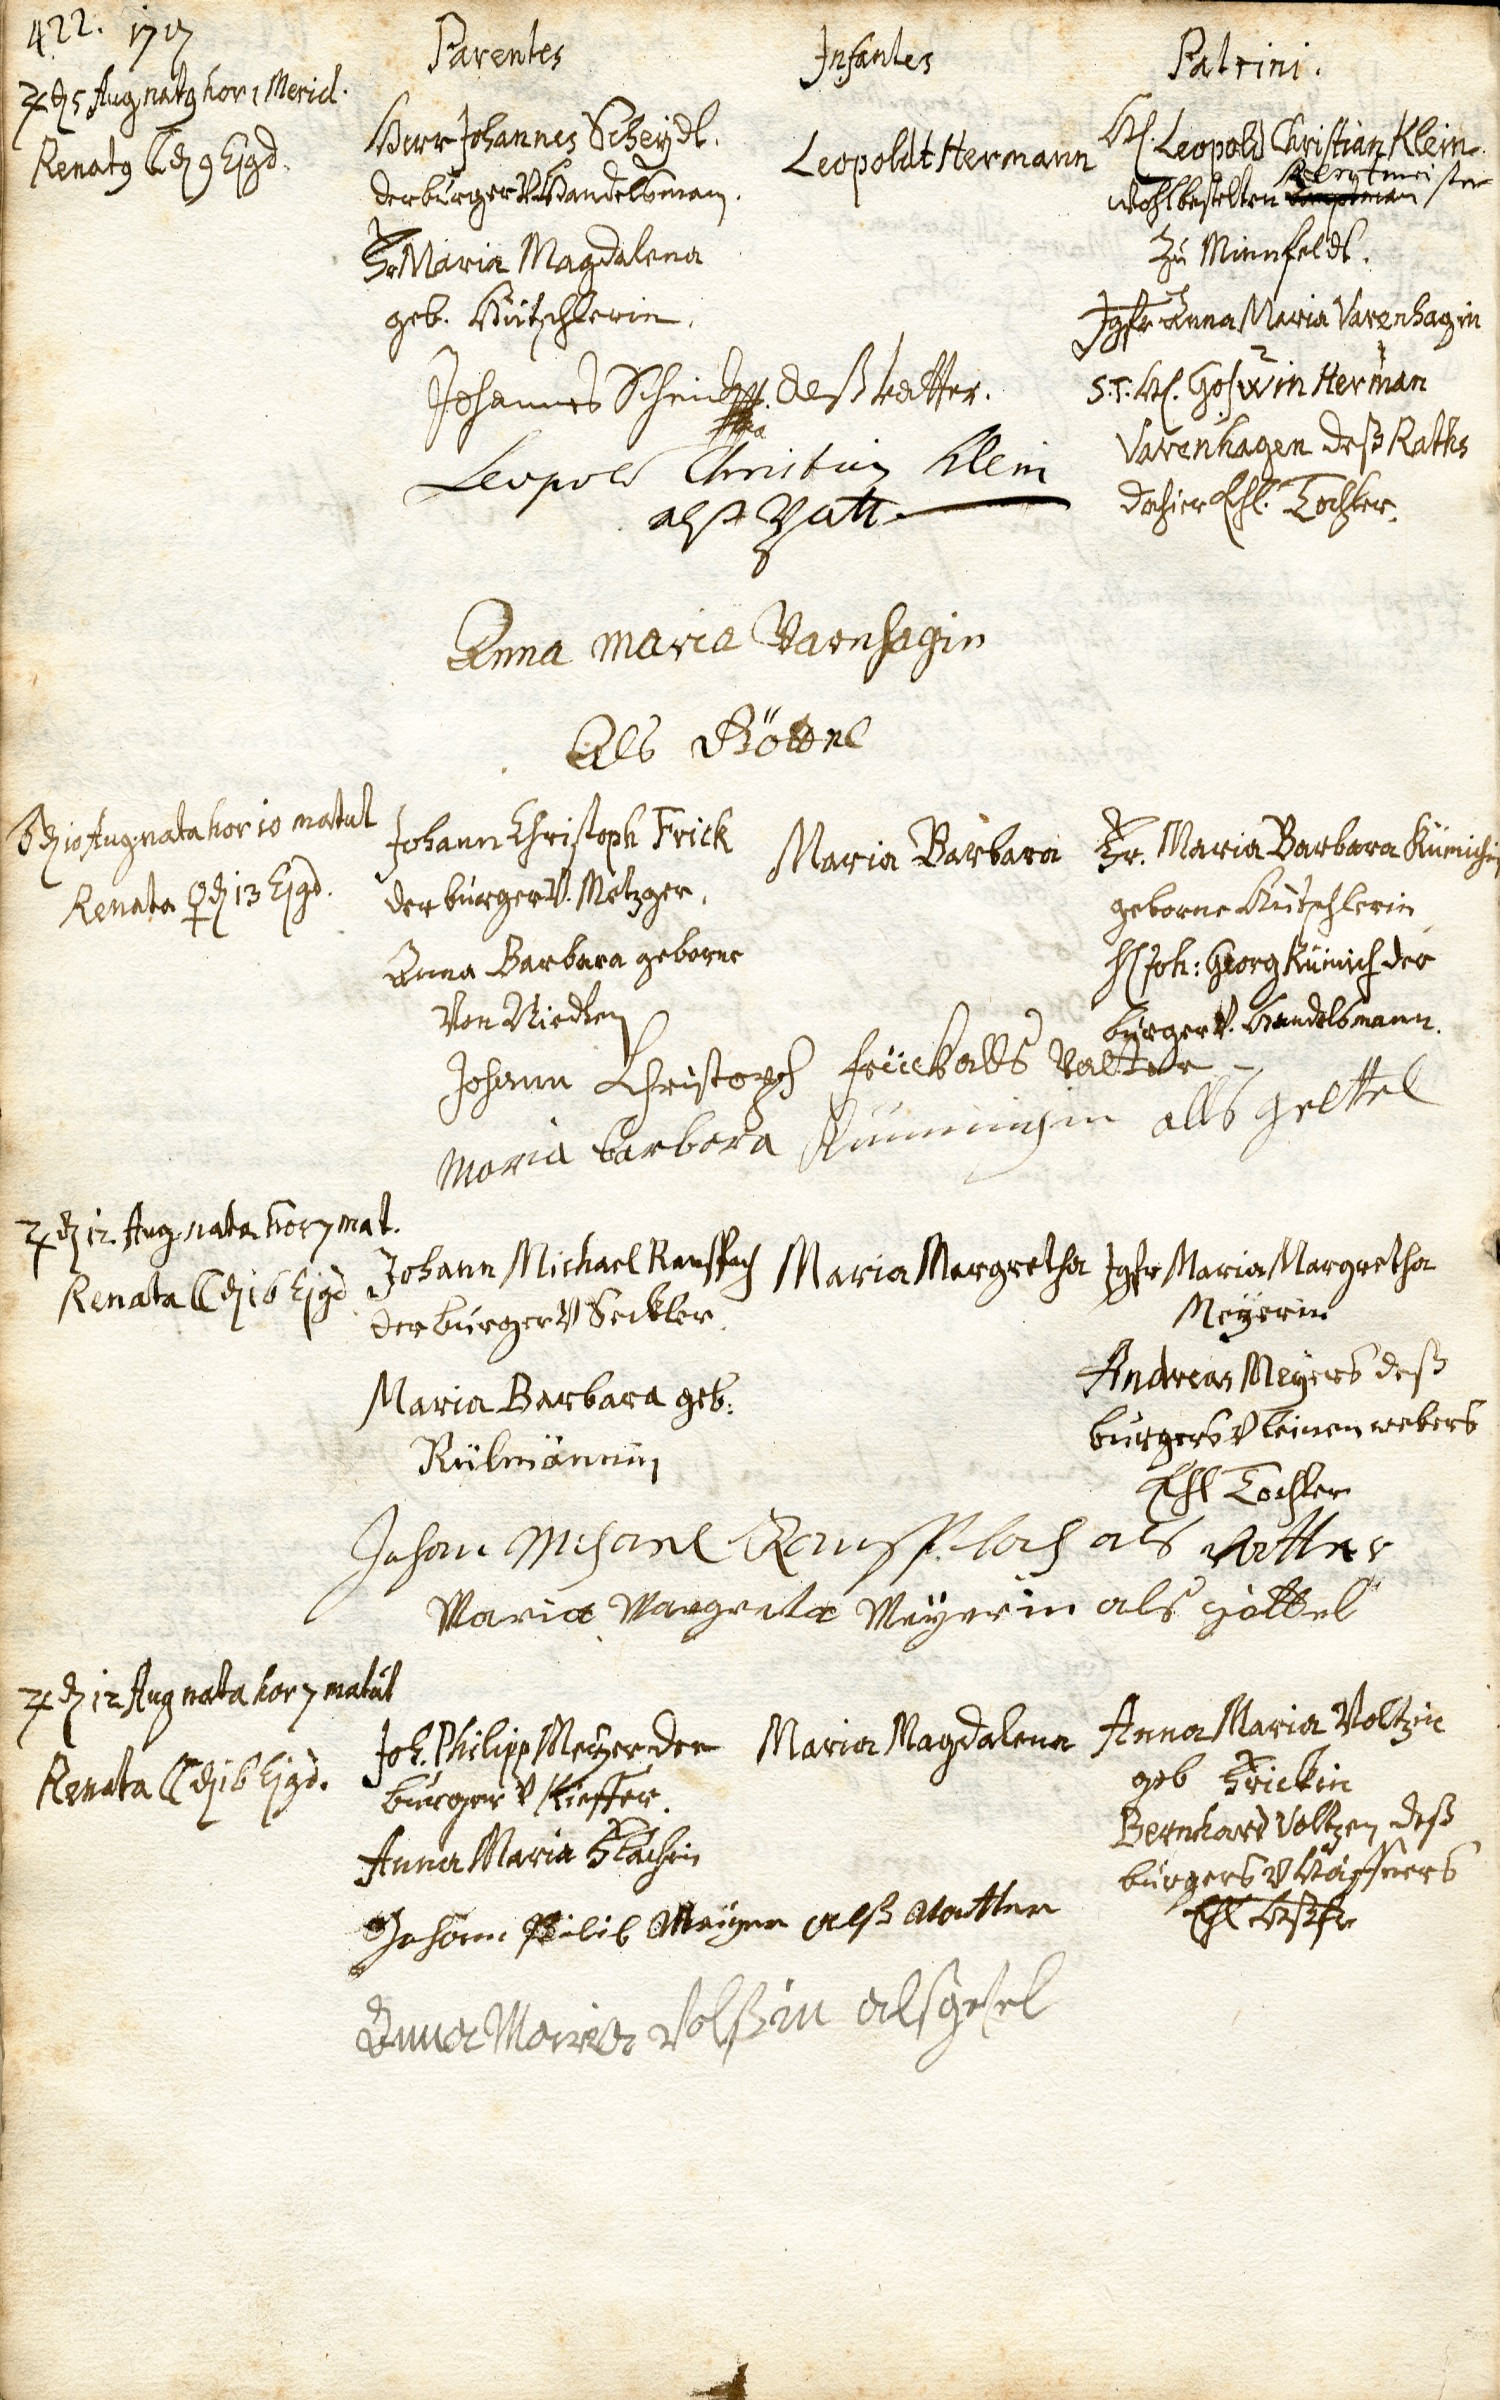 422. 1717
Parentes
Infantes
Patrini.
♃ d 5 Aug natq hor 1 Merid.
Renatq ☾ d 9 Ejqd.
Herr Johannes Scheydl.
der burger V. Handelsman.
Fr Maria Magdalena
geb. Kütschlerin.
Leopoldt Hermann
H. Leopold Christian Klein
wohlbestelten
zu Minnfeldt.
Jgfr Anna Maria Varenhagin
S. T. H. Goswin Herman
Varenhagen deß Raths
dahier Ehl. Tochter.
Johannes deß Vatter.
Leopold Christian Klein
alß Patt
Anna Maria Varnhagin
Als Göttel
♄ d 10 Aug. nata hor 10 matut
Renata ♀ d 13 Ejqd.
Johann Christoph Frick
der burger V. Metzger.
Anna Barbara geborne
Von Nieden
Maria Barbara
Fr. Maria Barbara Kümichin
geborne Kütschlerin
H Joh: Georg Kümich der
burger V. Handelsmann.
Johann Christoph Früek alls Vatter
Maria barbara Kümmichin alls gettel
♃ d 12. Aug. nata hor 7 mat.
Renata ☾ d 16 Ejqd
Johann Michael Ranspach
der burger V Seckler
Maria Barbara geb.
Rülmännin
Maria Margretha
Jgfr Maria Margretha
Meÿerin
Andreas Meÿers deß
burgers V leinenwebers
Ehl Tochter
Johan Michael Ranspach als Vatter
Maria Margreta Meÿerin als göttel
♃ d 12 Aug nata hor 7 matut
Renata ☾ d 16 Ejqd.
Joh. Philipp Meÿer der
burger V Kieffer.
Anna Maria
Maria Magdalena
Anna Maria Voltzin
geb Frickin
Bernhard Voltzen deß
burgers V Häffners
Ehl
Johann Philib Meÿer alß Vatter
Anna Maria Volßin als gesel